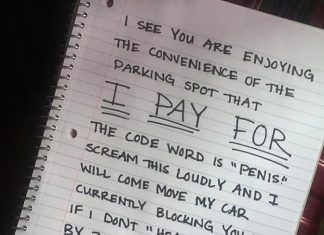 I SEE YOU ARE ENJOYING
THE CONVENIENCE OF THE
PARKING SPOT THAT
I PAY FOR
THE CODE WORD IS "PENIS."
SCREAM THIS LOUDLY AND I
WILL COME MOVE MY CAR
CURRENTLY BLOCKING YOU
IF I DONT "HEA
BY